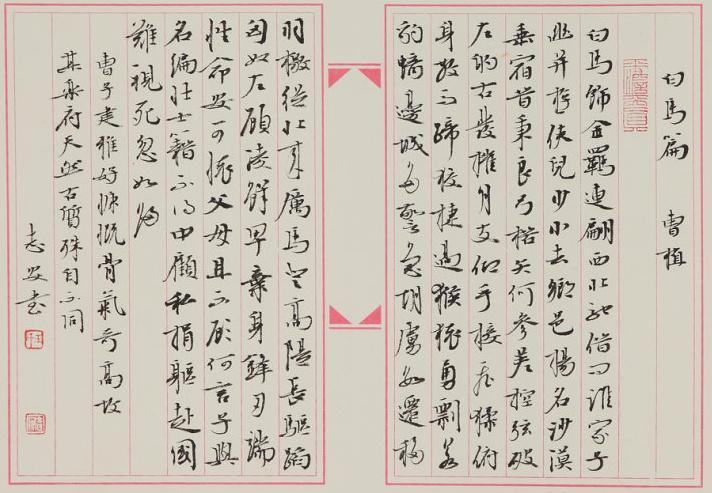 白馬篇 曹植
白馬飾金羈連翩西北馳借问誰家子
幽并游俠兒少小去鄉邑揚名沙漠
垂宿昔秉良弓楛矢何參差控弦破
左的右發摧月支仰手接飛猱俯
身散馬蹄狡捷過猴猿勇剽若
豹螭邊城多警急胡虜數遷移
羽檄從北来厲馬登高堤長驅蹈
匈奴左顧凌鮮卑棄身鋒刃端
性命安可懷父母且不顧何言子與
名編壮士籍不得中顧私捐軀赴國
難視死忽如歸
曹子建雅好慷慨骨氣奇高故
其樂府天然古質殊自不同
志安書